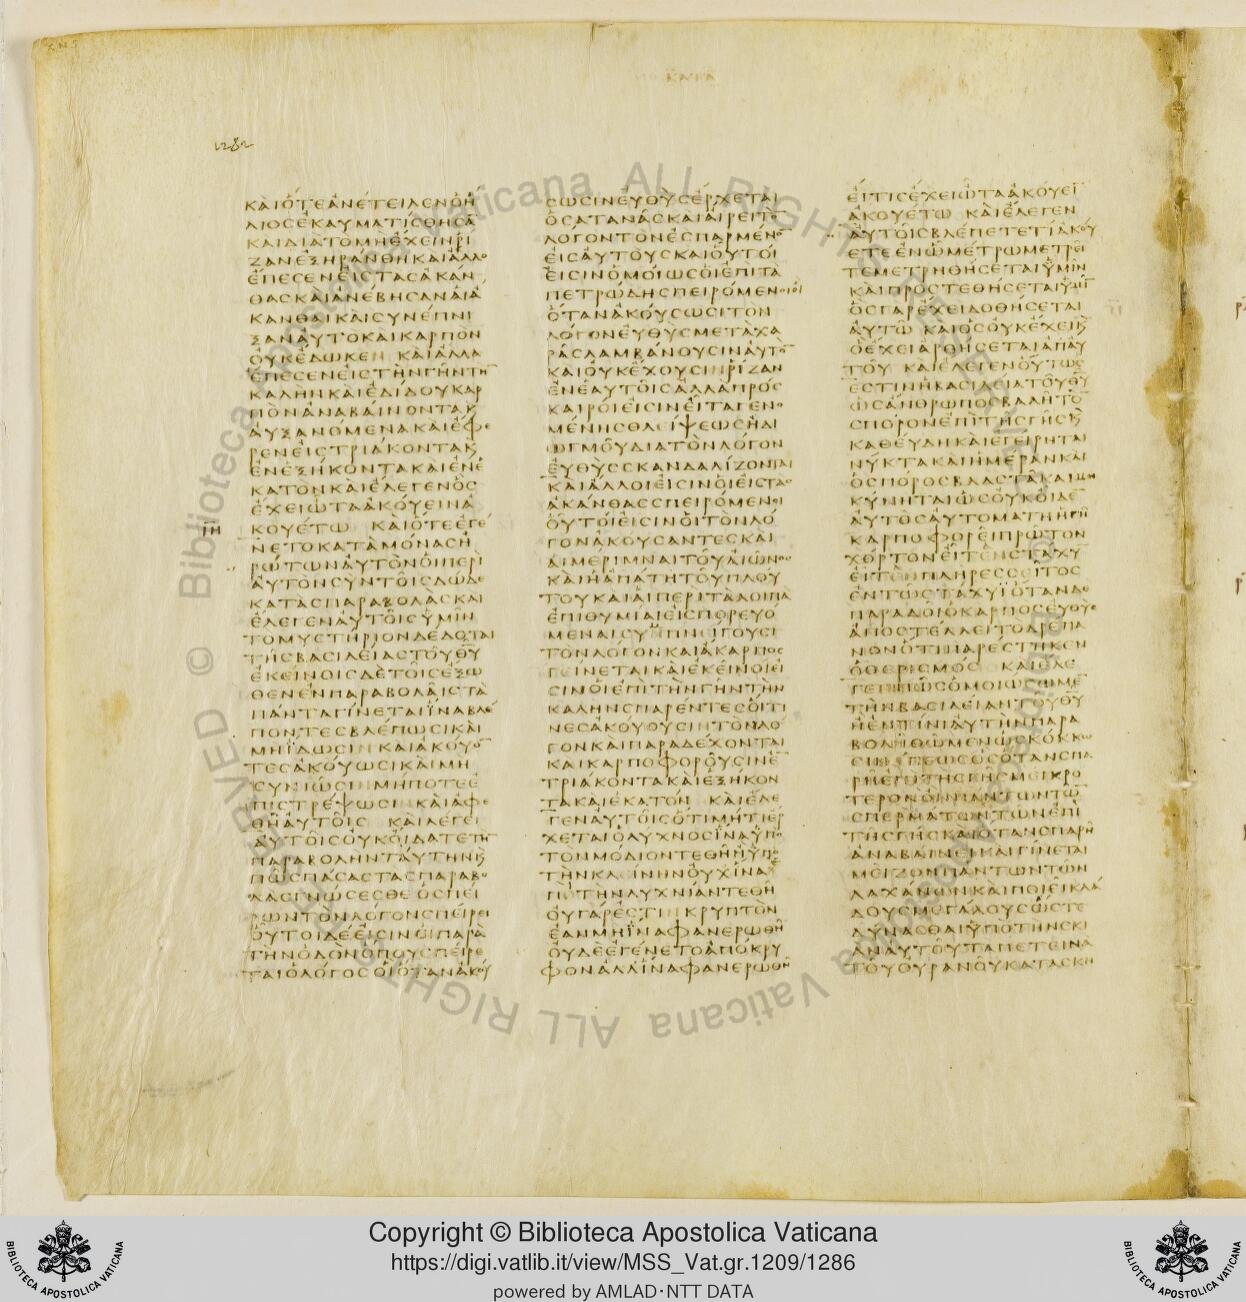 1282
ΚΑΙΟΤΕΑΝΕΤΕΙΛΕΝΟΗ
ΛΙΟΣΕΚΑΥΜΑΤΙΣΘΗΣΑ̅
ΚΑΙΔΙΑΤΟΜΗΕΧΕΙΝΡΙ
ΖΑΝΕΞΗΡΑΝΘΗΚΑΙΑΛΛΟ
ΕΠΕΣΕΝΕΙΣΤΑΣΑΚΑΝ
ΘΑΣΚΑΙΑΝΕΒΗΣΑΝΑΙΑ
ΚΑΝΘΑΙΚΑΙΣΥΝΕΠΝΙ
ΞΑΝΑΥΤΟΚΑΙΚΑΡΠΟΝ
ΟΥΚΕΔΩΚΕΝ ΚΑΙΑΛΛΑ
ΕΠΕΣΕΝΕΙΣΤΗΝΓΗΝΤΗ̅
ΚΑΛΗΝΚΑΙΕΔΙΔΟΥΚΑΡ
ΠΟΝΑΝΑΒΑΙΝΟΝΤΑΚ
ΑΥΞΑΝΟΜΕΝΑΚΑΙΕΦΕ
ΡΕΝΕΙΣΤΡΙΑΚΟΝΤΑΚ
ΕΝΕΞΗΚΟΝΤΑΚΑΙΕΝΕ
ΚΑΤΟΝΚΑΙΕΛΕΓΕΝΟΣ
ΕΧΕΙΩΤΑΑΚΟΥΕΙΝΑ
ΙΗ ΚΟΥΕΤΩ ΚΑΙΟΤΕΕΓΕ
ΝΕΤΟΚΑΤΑΜΟΝΑΣΗ
ΡΩΤΩΝΑΥΤΟΝΟΙΠΕΡΙ
ΑΥΤΟΝΣΥΝΤΟΙΣΔΩΔΕ
ΚΑΤΑΣΠΑΡΑΒΟΛΑΣΚΑΙ
ΕΛΕΓΕΝΑΥΤΟΙΣΥΜΙΝ
ΤΟΜΥΣΤΗΡΙΟΝΔΕΔΟΤΑΙ
ΤΗΣΒΑΣΙΛΕΙΑΣΤΟΥΘ̅Υ̅
ΕΚΕΙΝΟΙΣΔΕΤΟΙΣΕΞΩ
ΘΕΝΕΝΠΑΡΑΒΟΛΑΙΣΤΑ
ΠΑΝΤΑΓΙΝΕΤΑΙΪΝΑΒΛΕ
ΠΟΝΤΕΣΒΛΕΠΩΣΙΚΑΙ
ΜΗΪΔΩΣΙΝΚΑΙΑΚΟΥΟ̅
ΤΕΣΑΚΟΥΩΣΙΚΑΙΜΗ
ΣΥΝΙΩΣΙΝΜΗΠΟΤΕΕ
ΠΙΣΤΡΕΨΩΣΙΝΚΑΙΑΦΕ
ΘΗΑΥΤΟΙΣ ΚΑΙΛΕΓΕΙ
ΑΥΤΟΙΣΟΥΚΟΙΔΑΤΕΤΗ̅
ΠΑΡΑΒΟΛΗΝΤΑΥΤΗΝΚ
ΠΩΣΠΑΣΑΣΤΑΣΠΑΡΑΒΟ
ΛΑΣΓΝΩΣΕΣΘΕ ΟΣΠΕΙ
ΡΩΝΤΟΝΛΟΓΟΝΣΠΕΙΡΕΙ
ΟΥΤΟΙΔΕΕΙΣΙΝΟΙΠΑΡΑ
ΤΗΝΟΔΟΝΟΠΟΥΣΠΕΙΡΕ
ΤΑΙΟΛΟΓΟΣΟΙΟΤΑΝΑΚΟΥ
ΣΩΣΙΝΕΥΘΥΣΕΡΧΕΤΑΙ
ΟΣΑΤΑΝΑΣΚΑΙΑΙΡΕΙΤΟ̅
ΛΟΓΟΝΤΟΝΕΣΠΑΡΜΕΝΟ̅
ΕΙΣΑΥΤΟΥΣΚΑΙΟΥΤΟΙ
ΕΙΣΙΝΟΜΟΙΩΣΟΙΕΠΙΤΑ
ΠΕΤΡΩΔΗΣΠΕΙΡΟΜΕΝΟΙΟΙ
ΟΤΑΝΑΚΟΥΣΩΣΙΤΟΝ
ΛΟΓΟΝΕΥΘΥΣΜΕΤΑΧΑ
ΡΑΣΛΑΜΒΑΝΟΥΣΙΝΑΥΤΟ̅
ΚΑΙΟΥΚΕΧΟΥΣΙΝΡΙΖΑΝ
ΕΝΕΑΥΤΟΙΣΑΛΛΑΠΡΟΣ
ΚΑΙΡΟΙΕΙΣΙΝΕΙΤΑΓΕΝΟ
ΜΕΝΗΣΘΛΕΙΨΕΩΣΗΔΙ
ΩΓΜΟΥΔΙΑΤΟΝΛΟΓΟΝ
ΕΥΘΥΣΣΚΑΝΔΑΛΙΖΟΝΤΑΙ
ΚΑΙΑΛΛΟΙΕΙΣΙΝΟΙΕΙΣΤΑΣ
ΑΚΑΝΘΑΣΣΠΕΙΡΟΜΕΝΟΙ
ΟΥΤΟΙΕΙΣΙΝΟΙΤΟΝΛΟ
ΓΟΝΑΚΟΥΣΑΝΤΕΣΚΑΙ
ΑΙΜΕΡΙΜΝΑΙΤΟΥΑΙΩΝΟΣ
ΚΑΙΗΑΠΑΤΗΤΟΥΠΛΟΥ
ΤΟΥΚΑΙΑΙΠΕΡΙΤΑΛΟΙΠΑ
ΕΠΙΘΥΜΙΑΙΕΙΣΠΟΡΕΥΟ
ΜΕΝΑΙΣΥΜΠΝΙΓΟΥΣΙ
ΤΟΝΛΟΓΟΝΚΑΙΑΚΑΡΠΟΣ
ΓΕΙΝΕΤΑΙΚΑΙΕΚΕΙΝΟΙΕΙ
ΣΙΝΟΙΕΠΙΤΗΝΓΗΝΤΗΝ
ΚΑΛΗΝΣΠΑΡΕΝΤΕΣΟΙΤΙ
ΝΕΣΑΚΟΥΟΥΣΙΝΤΟΝΛΟ
ΓΟΝΚΑΙΠΑΡΑΔΕΧΟΝΤΑΙ
ΚΑΙΚΑΡΠΟΦΟΡΟΥΣΙΝΕ̅
ΤΡΙΑΚΟΝΤΑΚΑΙΕΞΗΚΟΝ
ΤΑΚΑΙΕΚΑΤΟΝ ΚΑΙΕΛΕ
ΓΕΝΑΥΤΟΙΣΟΤΙΜΗΤΙΕΡ
ΧΕΤΑΙΟΛΥΧΝΟΣΙΝΑΥΠΟ
ΤΟΝΜΟΔΙΟΝΤΕΘΗΗΥΠΟ
ΤΗΝΚΛΙΝΗΝΟΥΧΙΝΑ
ΠΟΤΗΝΛΥΧΝΙΑΝΤΕΘΗ
ΟΥΓΑΡΕΣΤΙΝΚΡΥΠΤΟΝ
ΕΑΝΜΗΪΝΑΦΑΝΕΡΩΘΗ
ΟΥΔΕΕΓΕΝΕΤΟΑΠΟΚΡΥ
ΦΟΝΑΛΛΪΝΑΦΑΝΕΡΩΘΗ
ΕΙΤΙΣΕΧΕΙΩΤΑΑΚΟΥΕΙ̅
ΑΚΟΥΕΤΩ ΚΑΙΕΛΕΓΕΝ
ΑΥΤΟΙΣΒΛΕΠΕΤΕΤΙΑΚΟΥ
ΕΤΕΕΝΩΜΕΤΡΩΜΕΤΡΕΙ
ΤΕΜΕΤΡΗΘΗΣΕΤΑΙΥΜΙΝ
ΚΑΙΠΡΟΣΤΕΘΗΣΕΤΑΙΥΜΙ̅
ΟΣΓΑΡΕΧΕΙΔΟΘΗΣΕΤΑΙ
ΑΥΤΩ ΚΑΙΟΣΟΥΚΕΧΕΙΚ
ΟΕΧΕΙΑΡΘΗΣΕΤΑΙΑΠΑΥ
ΤΟΥ ΚΑΙΕΛΕΓΕΝΟΥΤΩΣ
ΕΣΤΙΝΗΒΑΣΙΛΕΙΑΤΟΥΘ̅Υ̅
ΩΣΑΝΘΡΩΠΟΣΒΑΛΗΤΟ̅
ΣΠΟΡΟΝΕΠΙΤΗΣΓΗΣΚ
ΚΑΘΕΥΔΗΚΑΙΕΓΕΙΡΗΤΑΙ
ΝΥΚΤΑΚΑΙΗΜΕΡΑΝΚΑΙ
ΟΣΠΟΡΟΣΒΛΑΣΤΑΚΑΙΜΗ
ΚΥΝΗΤΑΙΩΣΟΥΚΟΙΔΕ̅
ΑΥΤΟΣΑΥΤΟΜΑΤΗΗΓΗ
ΚΑΡΠΟΦΟΡΕΙΠΡΩΤΟΝ
ΧΟΡΤΟΝΕΙΤΕΝΣΤΑΧΥ
ΕΙΤΕΝΠΛΗΡΕΣΣΕΙΤΟΣ
ΕΝΤΩΣΤΑΧΥΪΟΤΑΝΔΕ
ΠΑΡΑΔΟΙΟΚΑΡΠΟΣΕΥΘΥΣ
ΑΠΟΣΤΕΛΛΕΙΤΟΔΡΕΠΑ
ΝΟΝΟΤΙΠΑΡΕΣΤΗΚΕΝ
ΟΘΕΡΙΣΜΟΣ ΚΑΙΕΛΕ
ΓΕΝΠΩΣΟΜΟΙΩΣΩΜΕ̅
ΤΗΝΒΑΣΙΛΕΙΑΝΤΟΥΘ̅Υ̅
ΗΕΝΤΙΝΙΑΥΤΗΝΠΑΡΑ
ΒΟΛΗΘΩΜΕΝΩΣΚΟΚΚΩ
ΣΙΝΑΠΕΩΣΟΣΟΤΑΝΣΠΑ
ΡΗΕΠΙΤΗΣΓΗΣΜΕΙΚΡΟ
ΤΕΡΟΝΟΝΠΑΝΤΩΝΤΩ̅
ΣΠΕΡΜΑΤΩΝΤΩΝΕΠΙ
ΤΗΣΓΗΣΚΑΙΟΤΑΝΣΠΑΡΗ
ΑΝΑΒΑΙΝΕΙΚΑΙΓΙΝΕΤΑΙ
ΜΕΙΖΟΝΠΑΝΤΩΝΤΩΝ
ΛΑΧΑΝΩΝΚΑΙΠΟΙΕΙΚΛΑ
ΔΟΥΣΜΕΓΑΛΟΥΣΩΣΤΕ
ΔΥΝΑΣΘΑΙΥΠΟΤΗΝΣΚΙ
ΑΝΑΥΤΟΥΤΑΠΕΤΕΙΝΑ
ΤΟΥΟΥΡΑΝΟΥΚΑΤΑΣΚΗ
Copyright © Biblioteca Apostolica Vaticana
https://digi.vatlib.it/view/MSS_Vat.gr.1209/1286
powered by AMLAD·NTT DATA